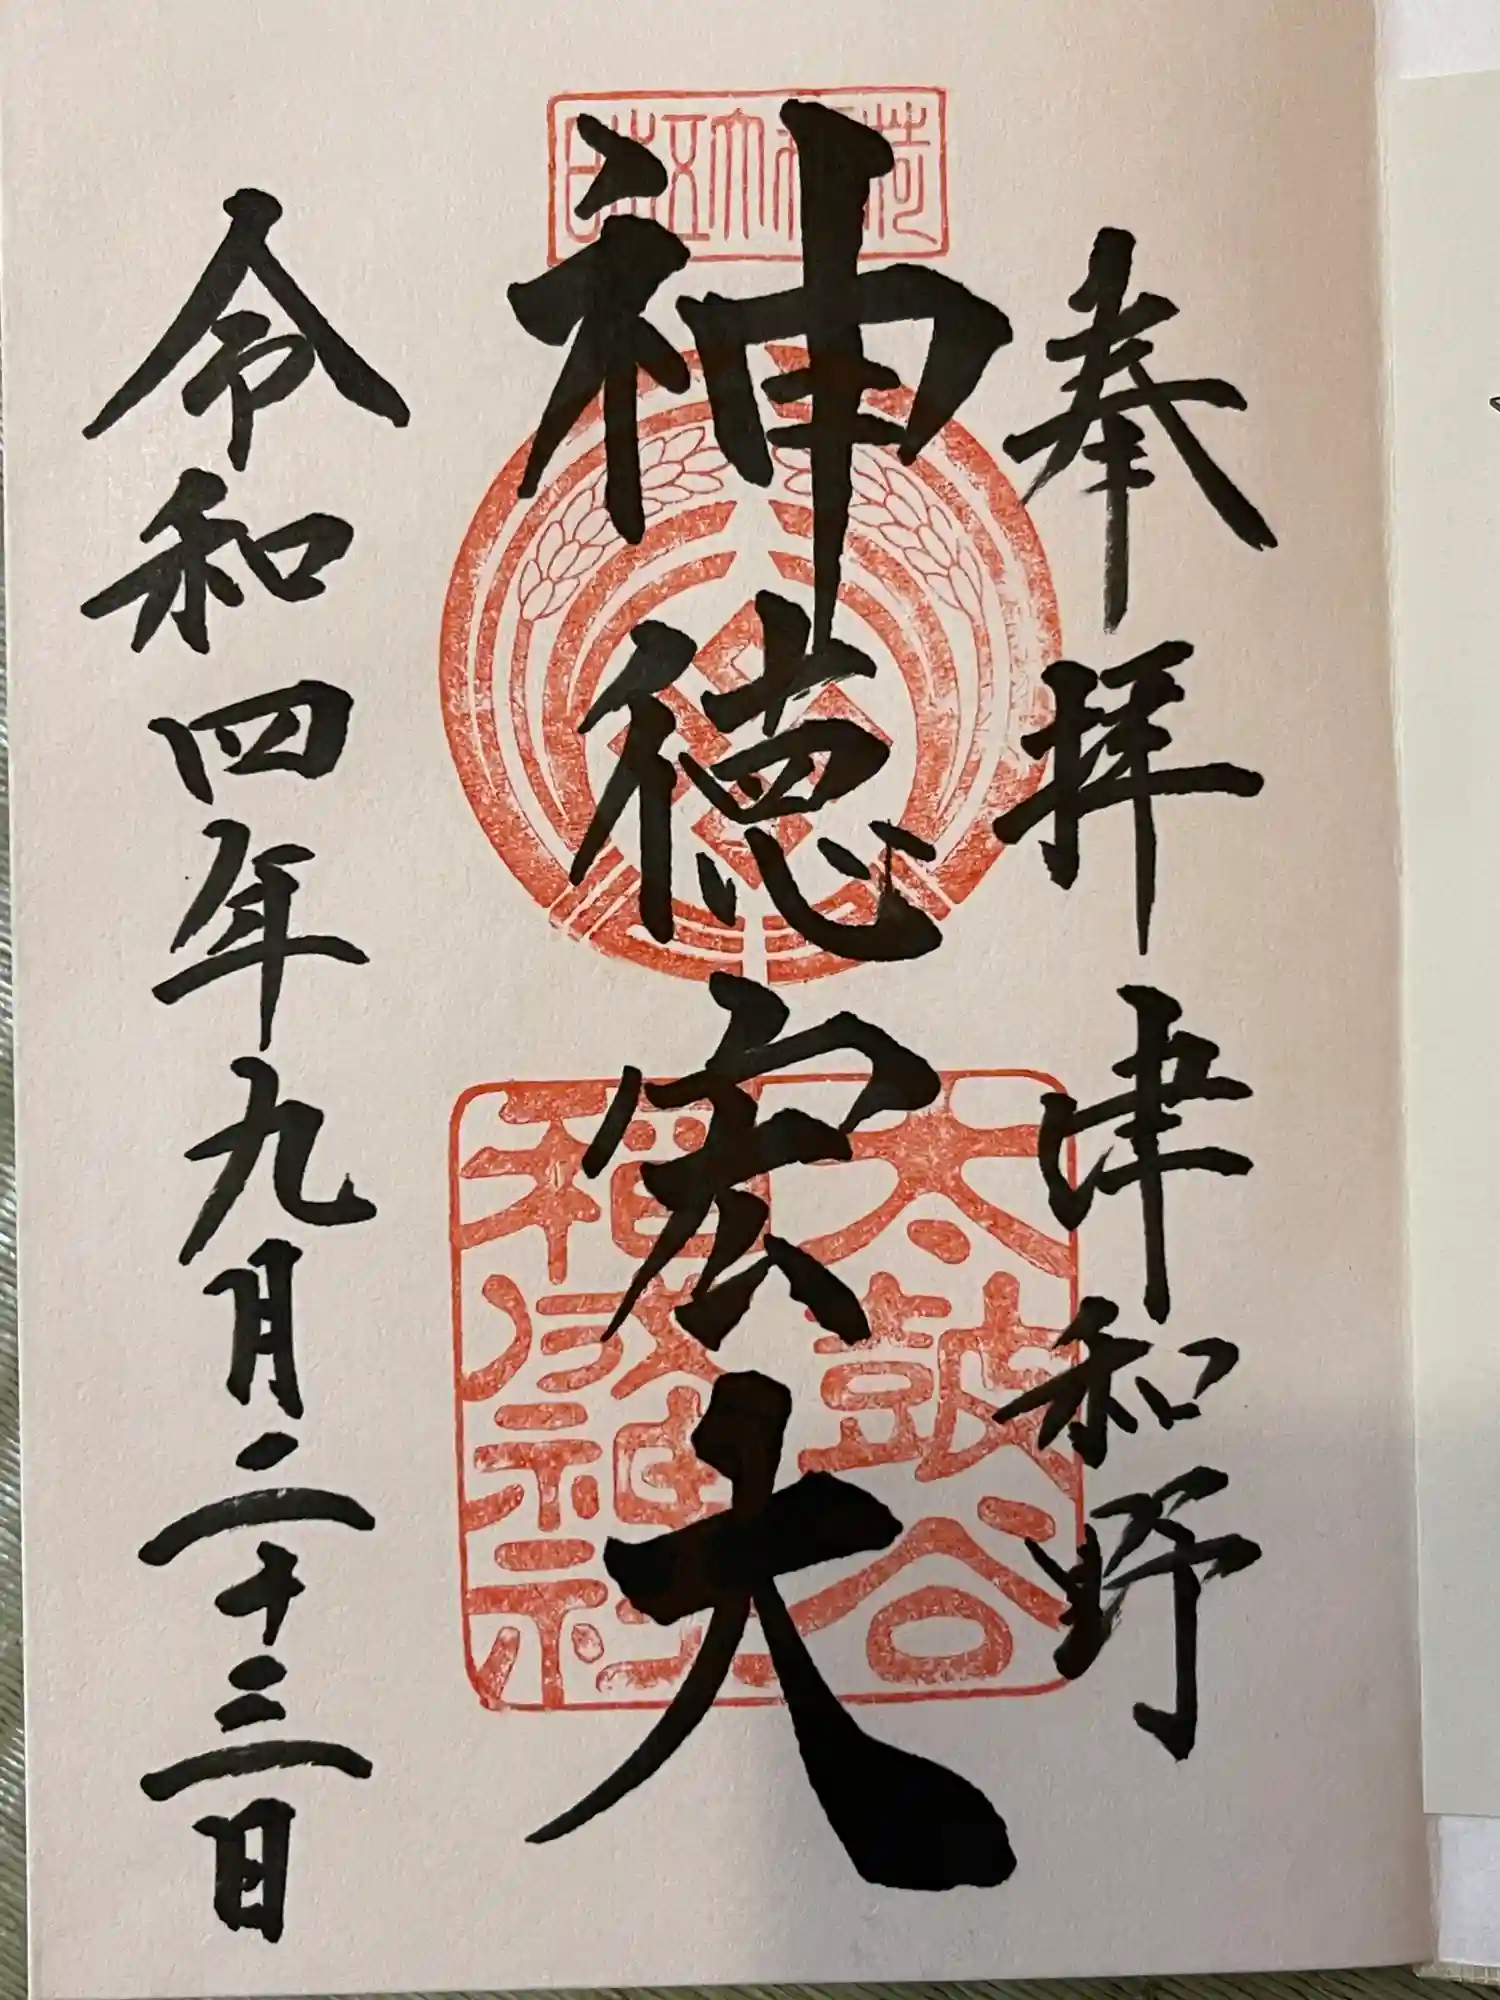 奉拝 津和野
神徳宏大
太皷谷
稲成神社
令和四年九月二十三日